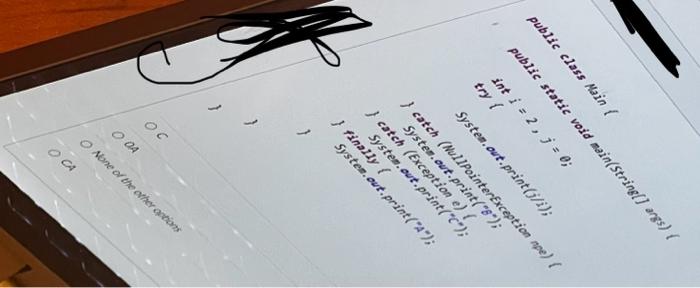 public class Main {
public static void main(String[] args) {
int i = 2, j = 0;
try {
System.out.print(j/i);
} catch (NullPointerException npe) {
System.out.print("B");
} catch (Exception e) {
System.out.print("C");
} finally {
System.out.print("A");
}
}
}
C
0A
None of the other options
CA